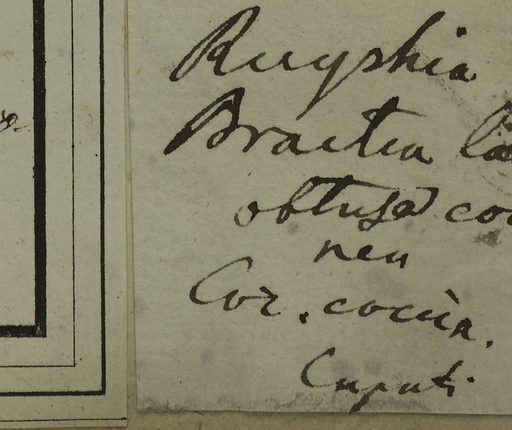 Ruyshia
Bractea la
obtusa co
nea
Cor. coccin.
Caput: